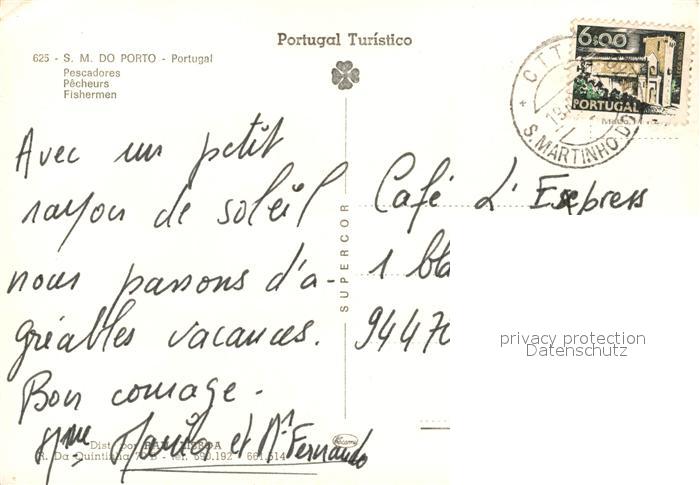 Portugal Turístico
625 - S. M. DO PORTO - Portugal
Pescadores
Pêcheurs
Fishermen
6$00
PORTUGAL
CTT
S. MARTINHO DO
Avec un petit
rayon de soleil
nous passons d'a-
gréables vacances.
Bon courage.
Mme Maria et Mr Fernando
SUPERCOR
Café L'Express
1 bld
9447
privacy protection
Datenschutz
Dist. por
R. Da Quintinha 70 B - Tel. 690.192 661.514